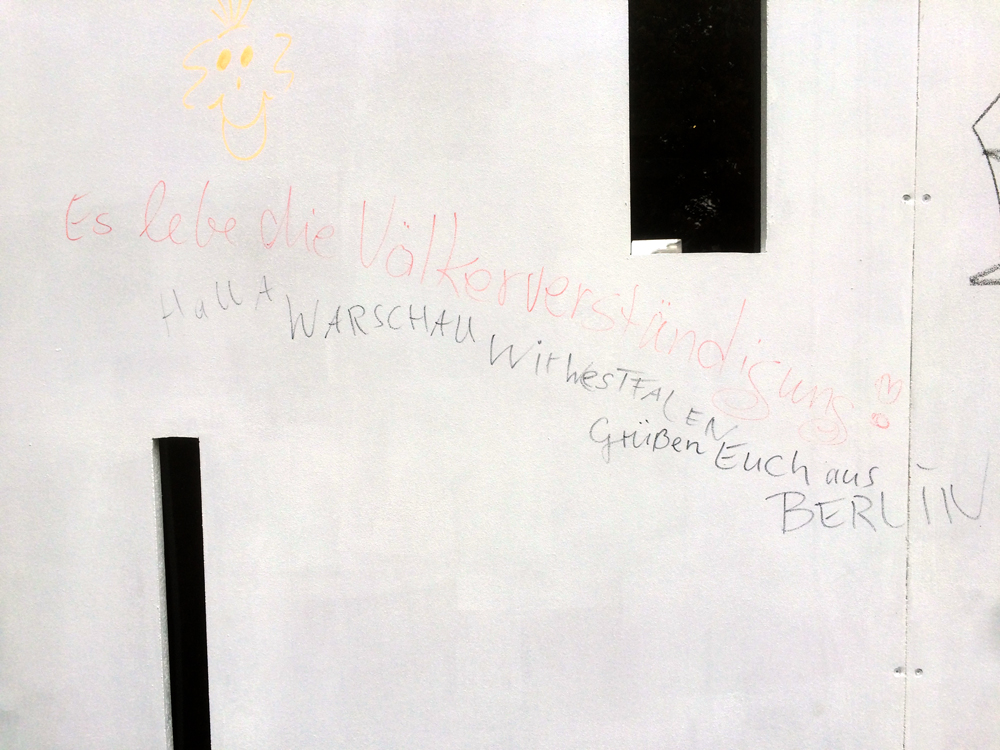 Es lebe die Völkerverständigung!
HallA WARSCHAU Wir WesTFALEN
Grüßen Euch aus
BERLIN